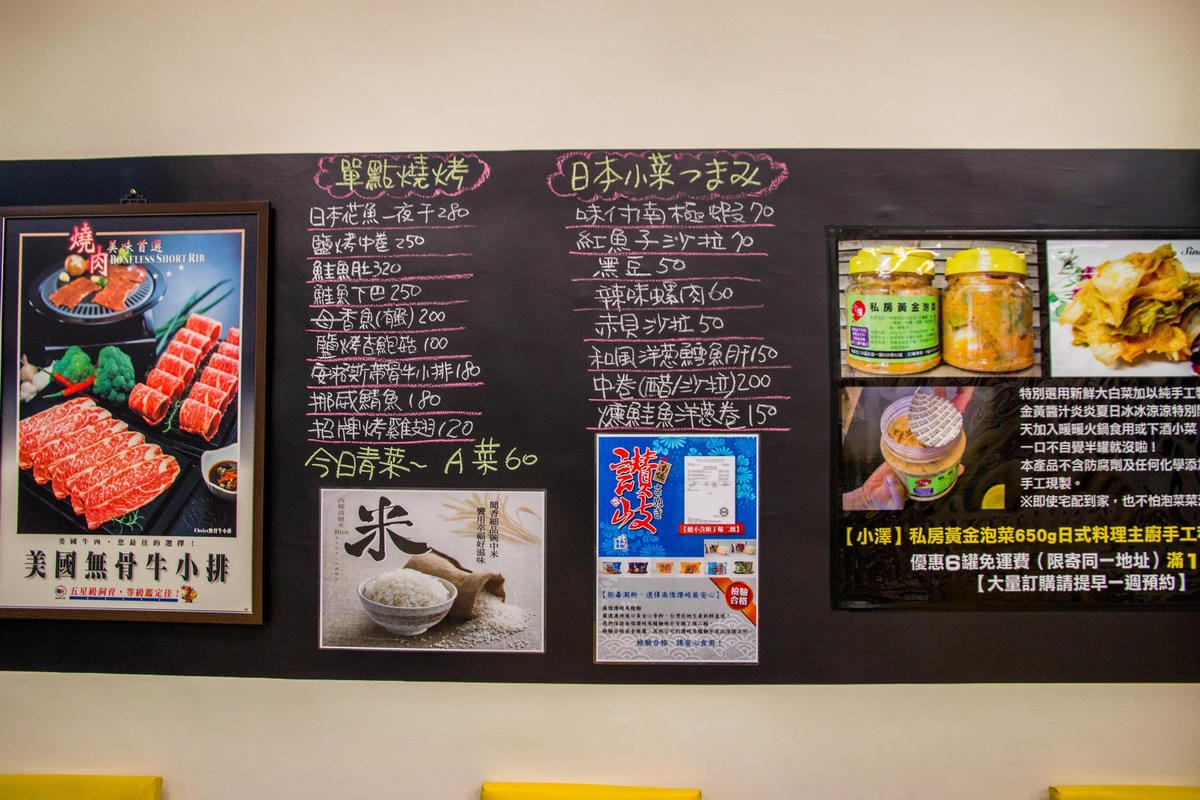 燒肉
美味首選
BONELESS SHORT RIB
Choice無骨牛小排
美國牛肉，您最佳的選擇！
美國無骨牛小排
五星級飼育，等級鑑定佳！
單點燒烤
日本花魚一夜干280
鹽烤中卷250
鮭魚肚320
鮭魚下巴250
母香魚(有蛋)200
鹽烤杏鮑菇100
安格斯帶骨牛小排180
挪威鯖魚180
招牌烤雞翅120
今日青菜～A菜60
米
Rice
聞香細品碗中米
饗用幸福好滋味
日本小菜つまみ
味付南極蝦70
紅魚子沙拉70
黑豆50
辣味螺肉60
赤貝沙拉50
和風洋蔥鱈魚肝150
中卷(醋/沙拉)200
燻鮭魚洋蔥卷150
讚岐
【絕不含順丁烯二酸】
檢驗合格
【拒毒澱粉，選擇南僑讚岐最安心】
檢驗合格，請安心食用！
私房黃金泡菜
特別選用新鮮大白菜加以純手工製
金黃醬汁炎炎夏日冰冰涼涼特別
天加入暖暖火鍋食用或下酒小菜
一口不自覺半罐就沒啦！
本產品不含防腐劑及任何化學添加
手工現製。
※即使宅配到家，也不怕泡菜菜
【小澤】私房黃金泡菜650g日式料理主廚手工
優惠6罐免運費（限寄同一地址）滿1
【大量訂購請提早一週預約】